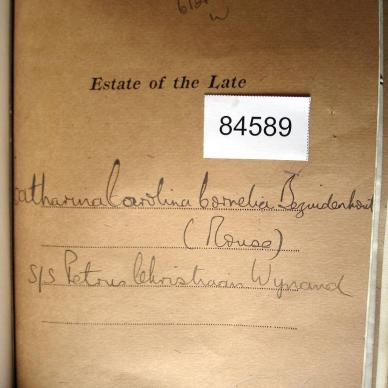 Estate of the Late
84589
Catharina Carolina Cornelia Bezuidenhout
(Rouse)
S/S Petrus Christiaan Wynand